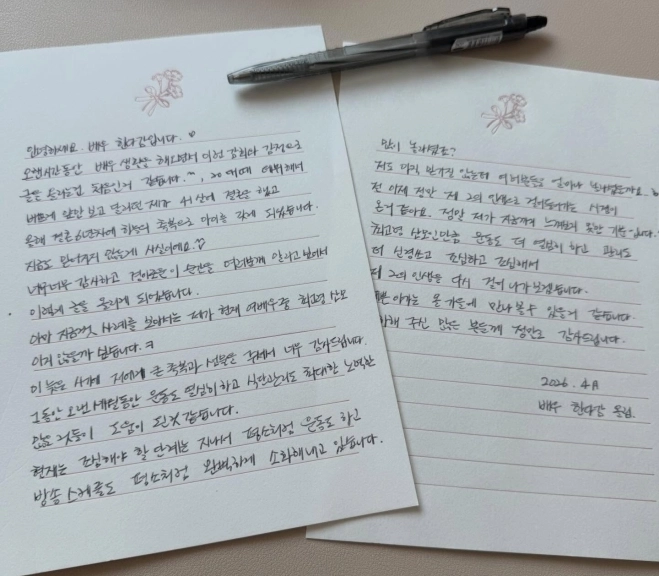 안녕하세요. 배우 한다감입니다.
오랜시간동안 배우 생활을 해오면서 이런 감회와 감정으로
글을 올리는건 처음인거 같습니다.^^, 20대때 데뷔해서
바쁘게 앞만 보고 달리던 제가 41살에 결혼을 했고
올해 결혼 6년차에 하늘의 축복으로 아이를 갖게 되었습니다.
지금도 믿어지지 않는게 사실이에요.
너무너무 감사하고 경이로운 이 순간을 여러분께 알리고 싶어서
이렇게 글을 올리게 되었습니다.
아마 지금껏 사례를 보아서는 제가 현재 여배우중 최고령 산모
아지 않을까 싶습니다.ㅋ
이 늦은 시기에 저에게 큰 축복과 선물을 주셔서 너무 감사드립니다.
그동안 오랜 세월동안 운동도 열심히 하고 식단관리도 최대한 노력한
많은 것들이 도움이 된것 같습니다.
현재는 조심해야 할 단계는 지나서 평소처럼 운동도 하고
방송 스케줄도 평소처럼 완벽하게 소화해내고 있습니다.
많이 놀라셨죠?
저도 아직 믿기질 않는데 여러분들도 얼마나 놀라셨을까요.
전 이제 정말 제 2의 인생으로 걸어들어가는 시점이
온거 같아요. 정말 제가 지금까지 느껴보지 못한 기분입니다.
최고령 산모인만큼 운동도 더 열심히 하고 관리도
더 신경쓰고 조심하고 조심해서
제 2의 인생을 다시 걸어 나가 보겠습니다.
아가는 올 가을에 만나볼 수 있을거 같습니다.
해 주신 많은 분들께 정말로 감사드립니다.
2026. 4月
배우 한다감 올림.